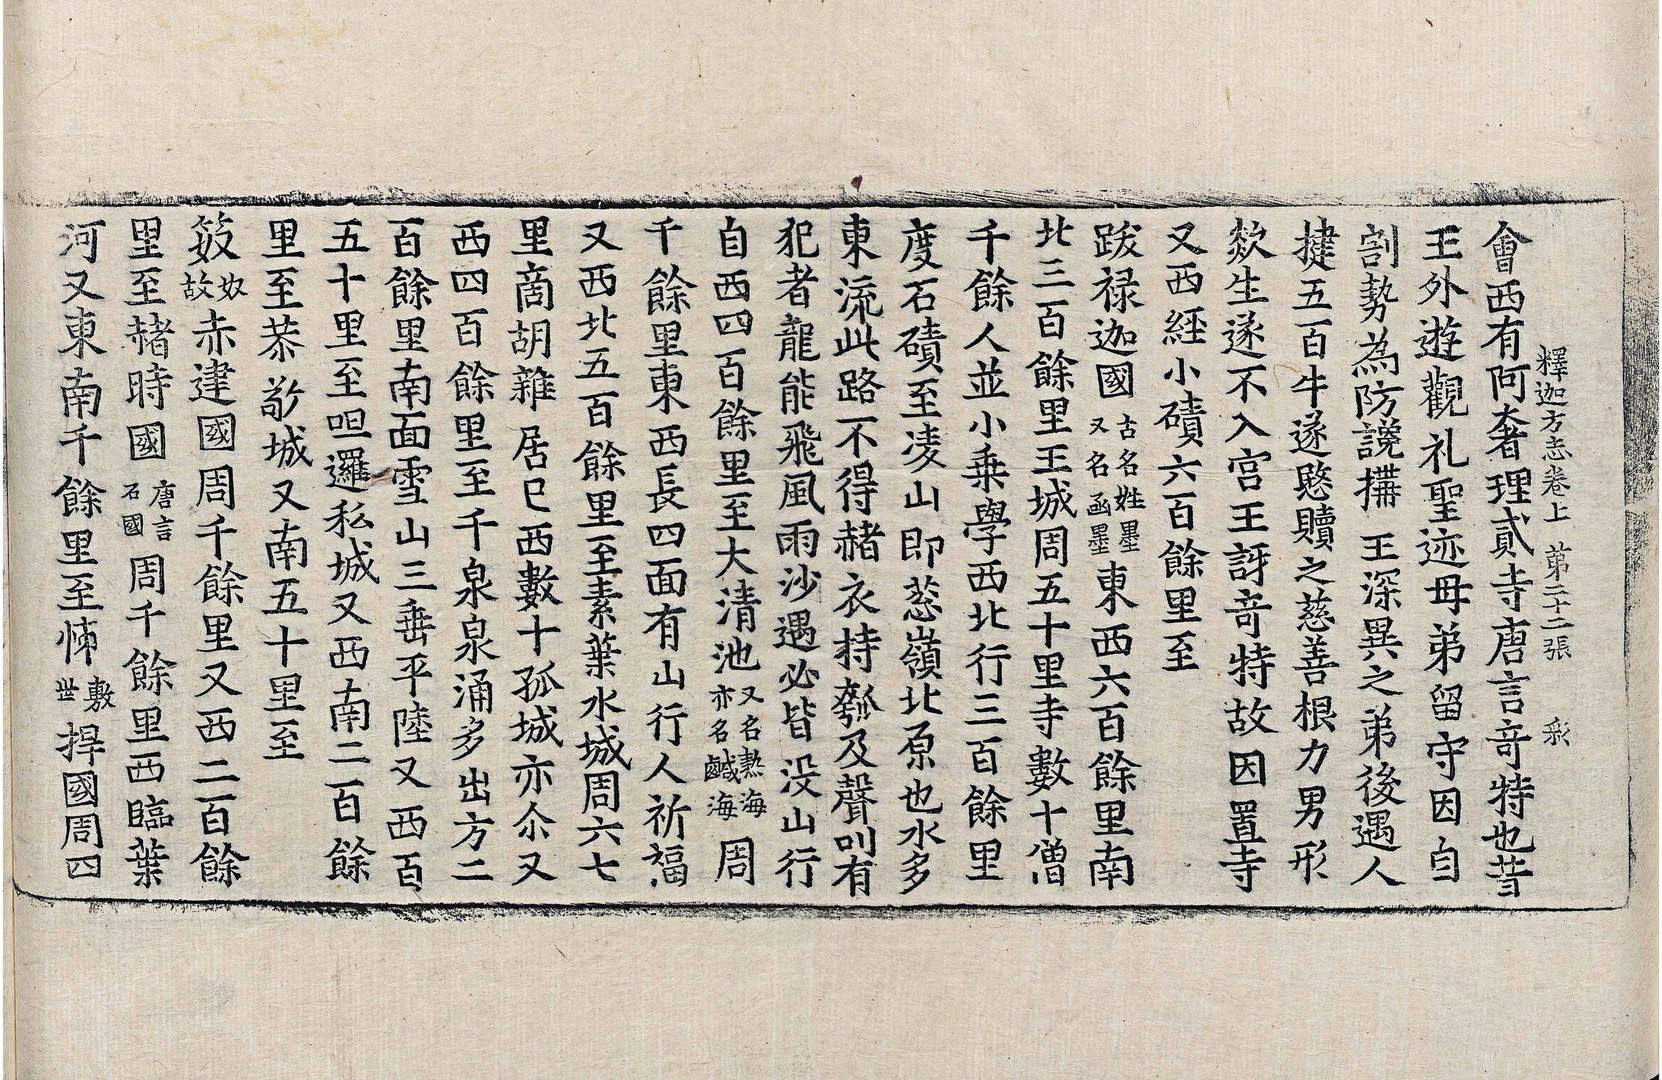 釋迦方志卷上 第二十二張 彩
會西有阿奢理貳寺唐言竒特也昔
王外遊觀礼聖迹母弟留守因自
割勢為防讒搆 王深異之弟後遇人
揵五百牛遂愍贖之慈善根力男形
欻生遂不入宫王訝竒特故因置寺
又西經小磧六百餘里至
跋禄迦國古名姓墨又名亟墨東西六百餘里南
北三百餘里王城周五十里寺數十僧
千餘人並小乗學西北行三百餘里
度石磧至凌山即葱嶺北原也水多
東流此路不得赭衣持瓠及聲叫有
犯者龍能飛風雨沙遇必皆没山行
自西四百餘里至大清池又名熱海亦名鹹海周
千餘里東西長四面有山行人祈福
又西北五百餘里至素葉水城周六七
里商胡雜居已西數十孤城亦尒又
西四百餘里至千泉泉涌多出方二
百餘里南面雪山三垂平陸又西百
五十里至呾邏私城又西南二百餘
里至恭御城又南五十里至
笯奴故赤建國周千餘里又西二百餘
里至赭時國唐言石國周千餘里西臨葉
河又東南千餘里至㤄敷世捍國周四